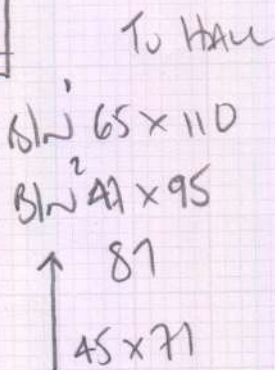 To HALL
B/W¹ 65 x 110
B/W² 47 x 95
87
45 x 71